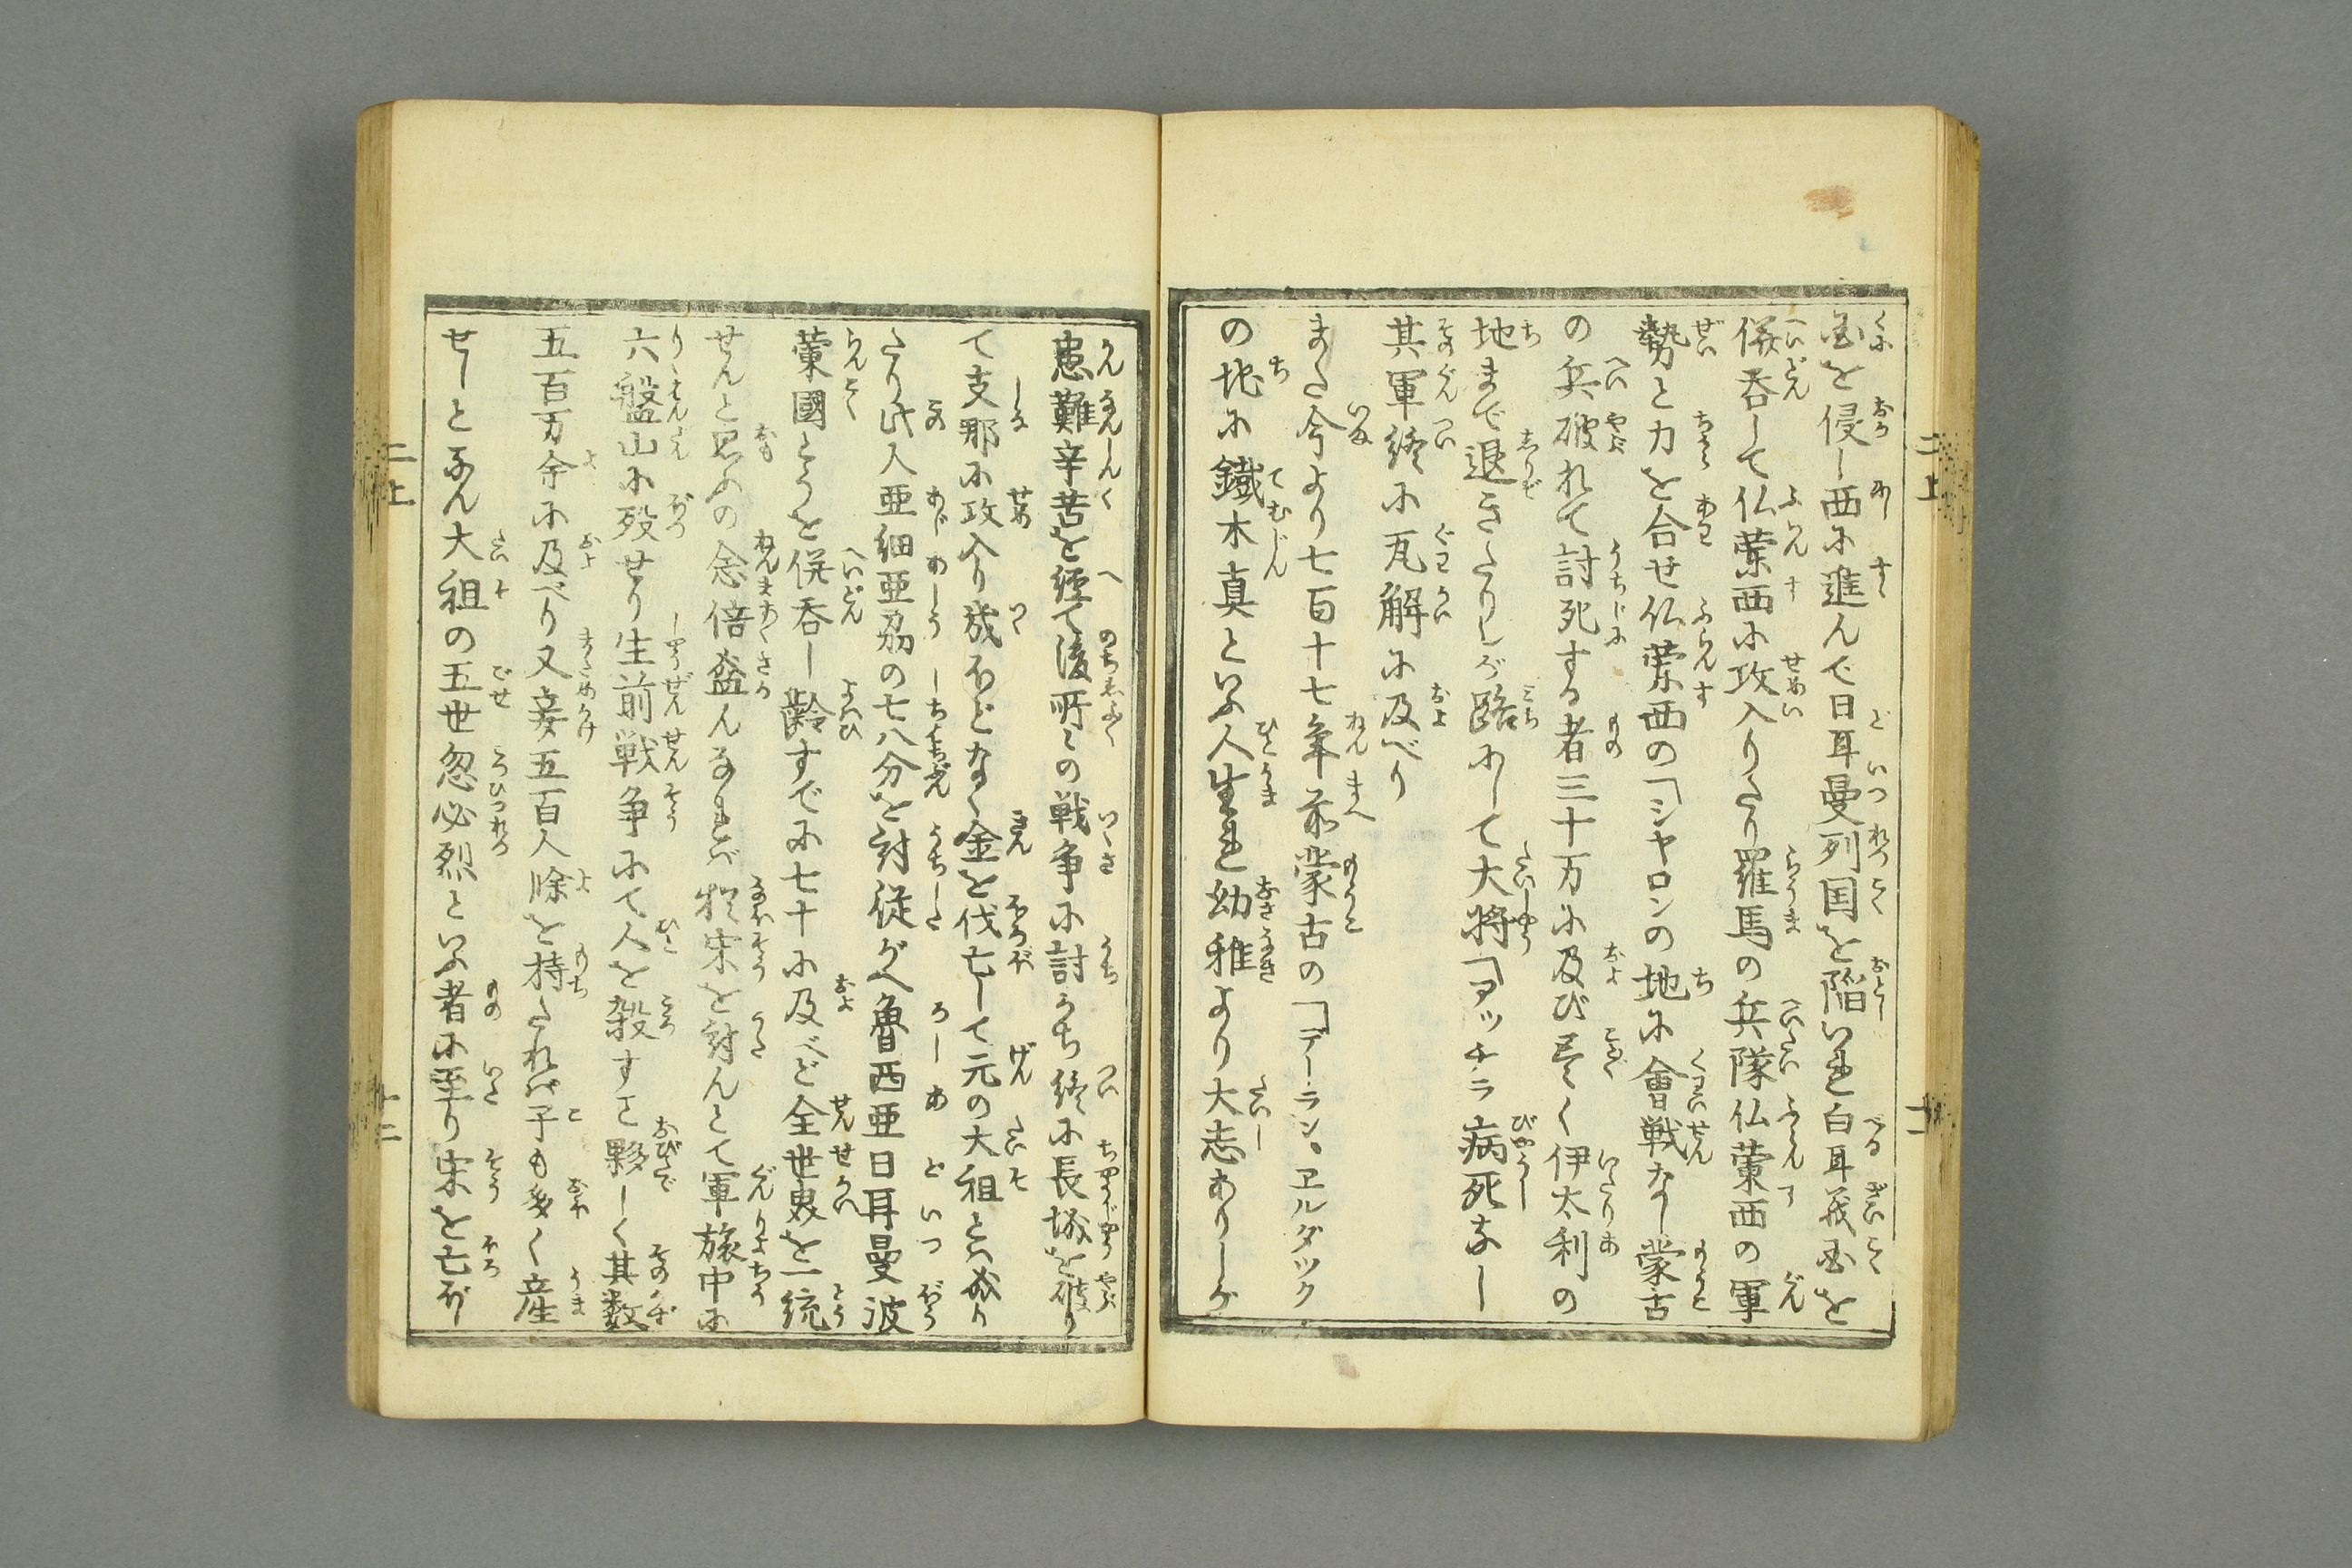 国を侵し西に進んで日耳曼列国を陥いれ白耳義国を
併呑して仏蘭西に攻入りたり羅馬の兵隊仏蘭西の軍
勢と力を合せ仏蘭西の「シヤロンの地に會戦なし蒙古
の兵破れて討死する者三十万に及び尽く伊太利の
地まで退きたりしが路にして大将「アッチラ病死なし
其軍終に瓦解に及べり
また今より七百十七年前蒙古の「デーラン。ヱルダツク
の地に鐵木真といふ人生れ幼稚より大志ありしが
患難辛苦を経て後所々の戦争に討かち終に長城を破り
て支那に攻入り幾ほどなく金を伐亡して元の大祖とは成り
たり此人亜細亜洲の七八分を討従がへ魯西亜日耳曼波
蘭國とうを併呑し齢すでに七十に及べど全世界を一統
せんと思ふの念倍盛んなれば猶宋を討んとて軍旅中に
六盤山に歿せり生前戦争にて人を殺すこと夥しく其数
五百万余に及べり又妾五百人餘を持たれば子も多く産
せしとなん大祖の五世忽必烈といふ者に至り宋を亡ぼ
二上
十二
二上
十二